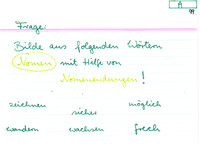 A
Frage:
Bilde aus folgenden Wörtern
Nomen mit Hilfe von
Nomenendungen!
zeichnen sicher möglich
wandern wachsen frech